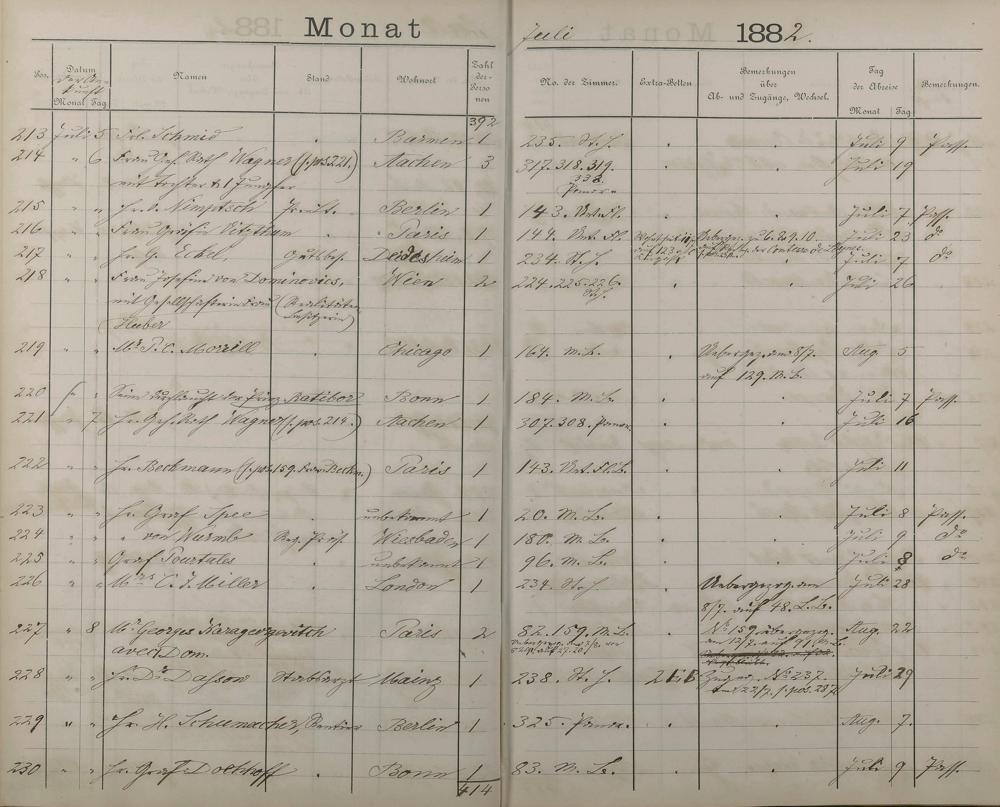 Monat Juli 1882.
Pos. Datum der Ankunft Monat Tag Namen Stand Wohnort Zahl der Personen No. der Zimmer. Extra-Betten Bemerkungen über Ab- und Zugänge, Wechsel. Tag der Abreise Monat Tag Bemerkungen.
392
213 Juli 5 Frl. Schmid Barmen 1 235. St. H. Juli 9 Pass.
214 " 6 Frau Geh. Rath Wagner (s. pos. 221.) Aachen 3 317. 318. 319. Juli 19
mit Tochter & 1 Jungfer 338.
215 " " Hr. v. Nimptsch Berlin 1 143. Juli 7 Pass.
216 " " Frau Gräfin Vitzthum Paris 1 144. Juli 23 do
217 " " Hr. G. Eckel, Gutsbes. Deidesheim 1 234. St. H. Juli 7 do
218 " " Frau Josefine von Dominovics, Wien 2 224. 225. 226. Juli 26
mit Gesellschafterin Frau (Realitäten St. H.
Huber besitzerin)
219 " " Mr. P. C. Morrill Chicago 1 164. M. B. Uebergez. am 8/7. Aug. 5
auf 129. M. B.
220 " " Seine Durchlaucht der Prinz Ratibor Bonn 1 184. M. B. Juli 7 Pass.
221 " 7 Hr. Geh. Rath Wagner (s. pos. 214.) Aachen 1 307. 308. Juli 16
222 " " Hr. Beckmann (s. pos. 159. Frau Beckm.) Paris 1 143. Juli 11
223 " " Hr. Graf Spee unbekannt 1 20. M. B. Juli 8 Pass.
224 " " " von Wurmb Reg. Präs. Wiesbaden 1 180. M. B. Juli 9 do
225 " " Graf Pourtales unbekannt 1 96. M. B. Juli 8 do
226 " " C. Miller London 1 234. St. H. Uebergezog. am Juli 28
8/7. auf 48. L. B.
227 " 8 Mr. Georges Karageorgevitch Paris 2 82. 159. M. B. No 159 übergezog. Aug. 22
avec Dom. am 12/7. auf 91. M. B.
228 " " Hr. Dr. Stabsarzt Mainz 1 238. St. H. No. 237. Juli 29
229 " " Hr. H. Schumacher, Rentier Berlin 1 325. Aug. 7.
230 " " Hr. Graf Bonn 1 83. M. B. Juli 9 Pass.
414